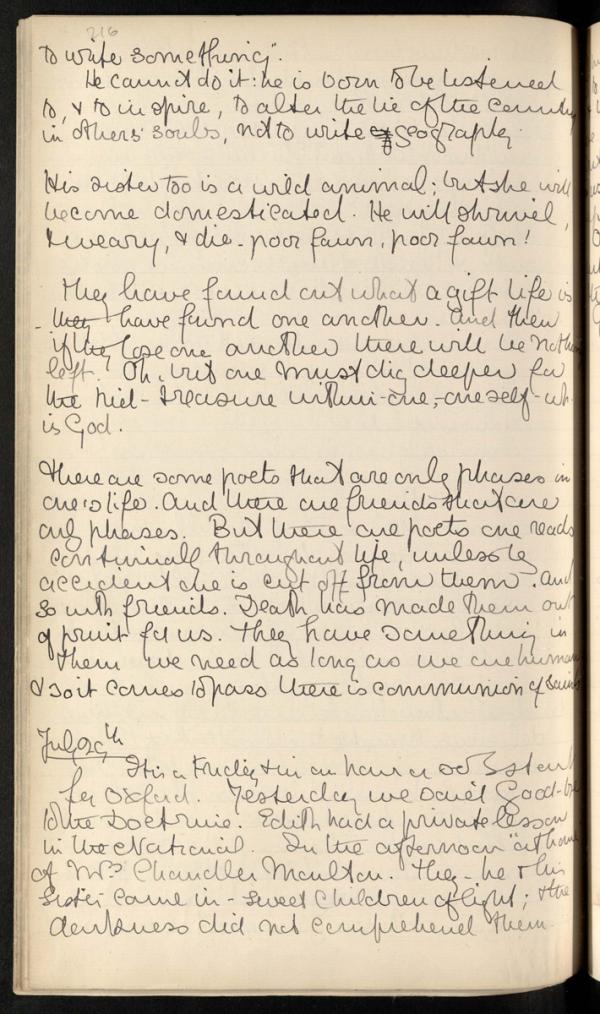 216
to write something".
He cannot do it: he is born to be listened
to, & to inspire, to alter the lie of the country
in others' souls, not to write geography.
His sister too is a wild animal; but she will
become domesticated. He will shrivel,
& weary, & die - poor fawn, poor fawn!
They have found out what a gift life is
- they have found one another. And then
if they lose one another there will be nothing
left. Oh, but one must dig deeper for
the hid-treasure within-one,-oneself-wh.
is God.
There are some poets that are only phases in
one's life. And there are friends that are
only phases. But there are poets one reads
continually throughout life, unless by
accident one is cut off from them. And
so with friends. Death has made them out
of fruit for us. They have something in
them we need as long as we are human
& so it comes to pass there is communion of Saints
July 29th
It is a Friday & in an hour or so I start
for Oxford. Yesterday we said Good-bye
to the Doctrine. Edith had a private lesson
in the National. In the afternoon "at home"
of Mrs Chandler Moulton. They - he & his
sister came in - sweet children of light; & the
darkness did not comprehend them.